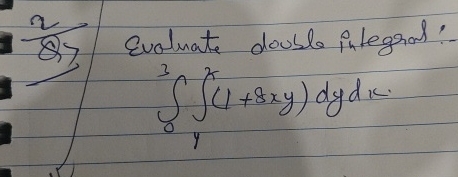 2
Q7 Evaluate double integral :-
3 x
∫ ∫ (1+8xy) dy dx.
0 y